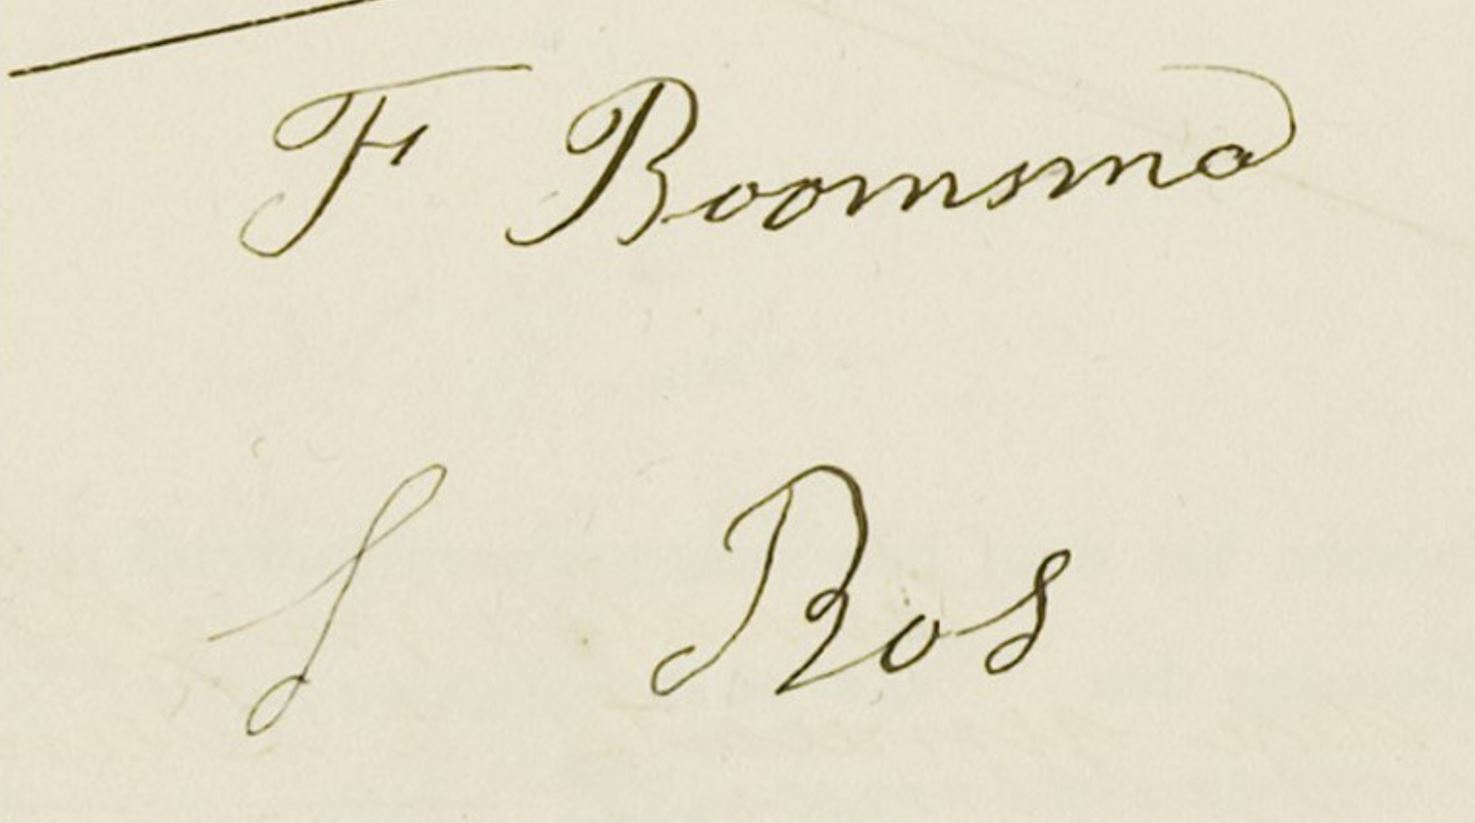 F Boomsma
S Bos